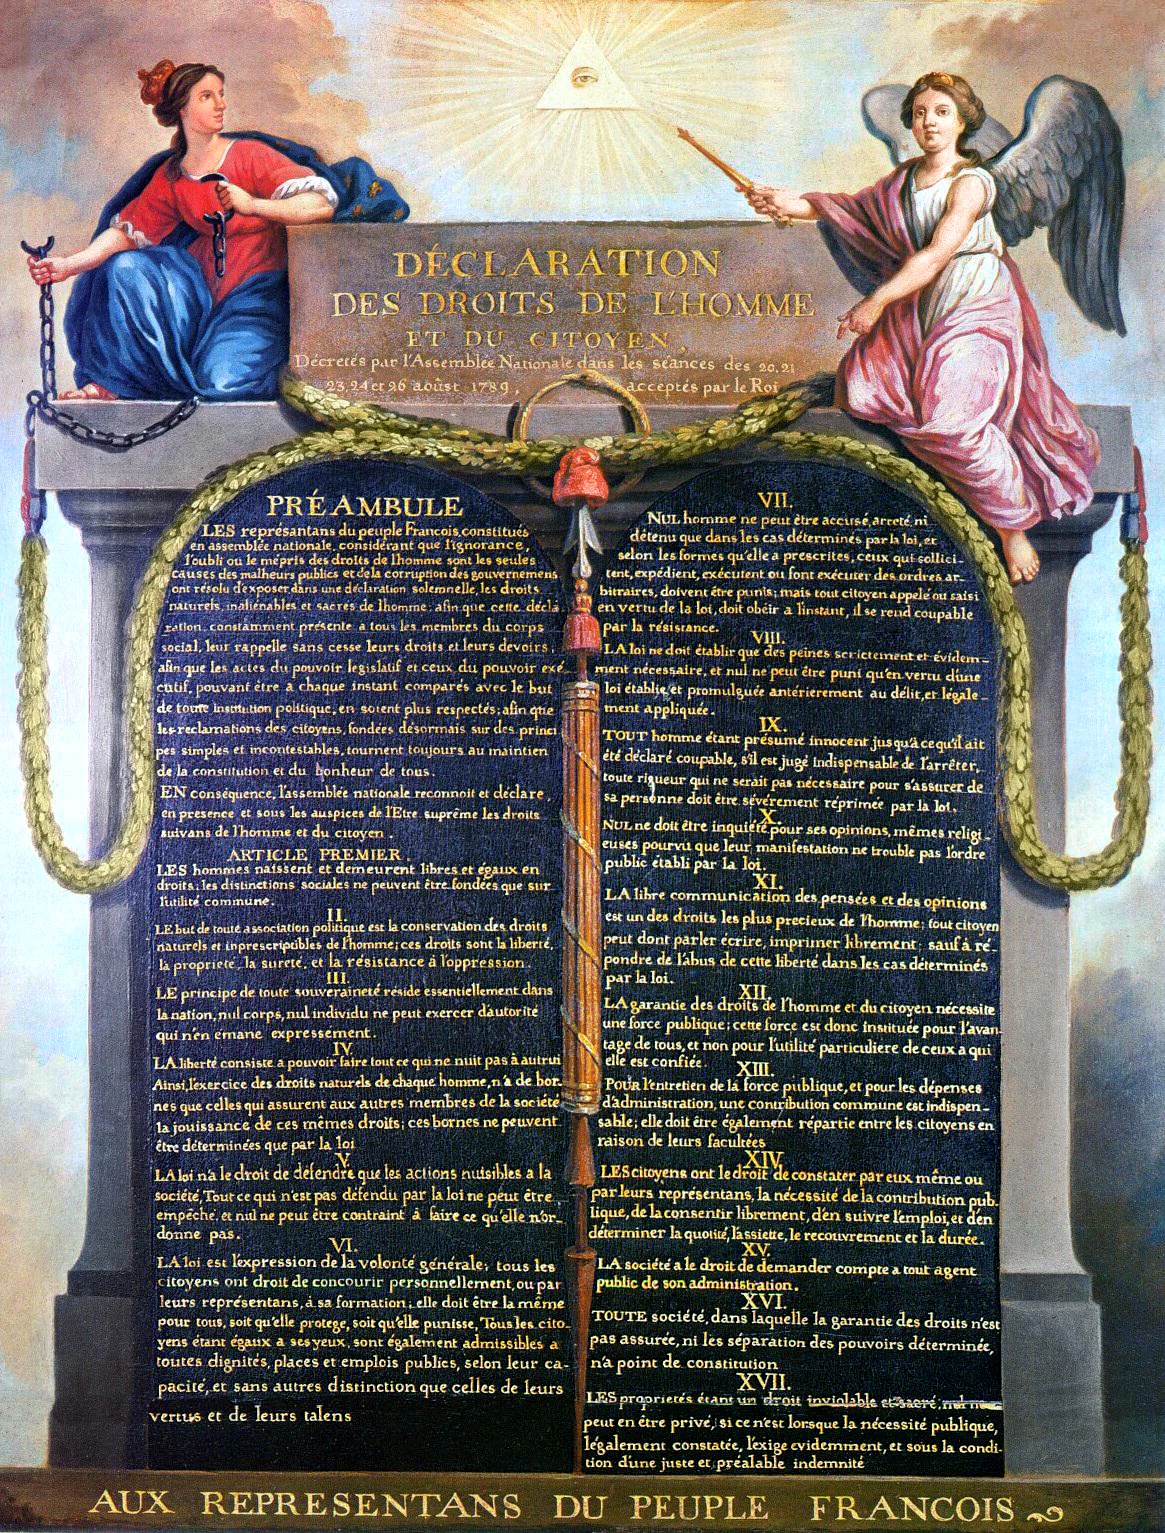 DÉCLARATION
DES DROITS DE L'HOMME
ET DU CITOYEN,
Décretés par l'Assemblée Nationale dans les séances des 20, 21
23, 24 et 26 août 1789, acceptés par le Roi
PRÉAMBULE
LES représantans du peuple Francois, constitués
en assemblée nationale, considérant que l'ignorance,
l'oubli ou le mépris des droits de l'homme sont les seules
causes des malheurs publics et de la corruption des gouvernemens
ont résolu d'exposer dans une déclaration solemnelle, les droits
naturels, inaliénables et sacrés de l'homme; afin que cette décla
ration, constamment présente a tous les membres du corps
social, leur rappelle sans cesse leurs droits et leurs devoirs;
afin que les actes du pouvoir legislatif et ceux du pouvoir exé
cutif, pouvant être a chaque instant comparés avec le but
de toute institution politique, en soient plus respectés; afin que
les reclamations des citoyens, fondées désormais sur des princi
pes simples et incontestables, tournent toujours au maintien
de la constitution et du bonheur de tous.
EN conséquence, l'assemblée nationale reconnoit et déclare
en presence et sous les auspices de l'Etre suprême les droits
suivans de l'homme et du citoyen.
ARTICLE PREMIER.
LES hommes naissent et demeurent libres et égaux en
droits; les distinctions sociales ne peuvent être fondées que sur
l'utilité commune.
II.
LE but de toute association politique est la conservation des droits
naturels et inprescriptibles de l'homme; ces droits sont la liberté,
la propriete, la sureté, et la résistance à l'oppression.
III.
LE principe de toute souveraineté réside essentiellement dans
la nation, nul corps, nul individu ne peut exercer d'autorité
qui n'en emane expressement.
IV.
LA liberté consiste a pouvoir faire tout ce qui ne nuit pas à autrui
Ainsi, l'exercice des droits naturels de chaque homme, n'a de bor-
nes que celles qui assurent aux autres membres de la société
la jouissance de ces mêmes droits; ces bornes ne peuvent
être déterminées que par la loi
V.
LA loi n'a le droit de défendre que les actions nuisibles a la
société, Tout ce qui n'est pas défendu par la loi ne peut être
empêché, et nul ne peut être contraint à faire ce qu'elle n'or-
donne pas.
VI.
LA loi est l'expression de la volonté générale; tous les
citoyens ont droit de concourir personnellement, ou par
leurs représentans, à sa formation; elle doit être la même
pour tous, soit qu'elle protege, soit qu'elle punisse, Tous les cito-
yens étant égaux a ses yeux, sont également admissibles a
toutes dignités, places et emplois publics, selon leur ca-
pacité, et sans autres distinction que celles de leurs
vertus et de leurs talens
VII.
NUL homme ne peut être accusé, arreté, ni
détenu que dans les cas déterminés par la loi, et
selon les formes qu'elle a prescrites, ceux qui sollici-
tent, expédient, exécutent ou font exécuter des ordres ar-
bitraires, doivent être punis; mais tout citoyen appelé ou saisi
en vertu de la loi, doit obéir a l'instant, il se rend coupable
par la résistance.
VIII.
LA loi ne doit établir que des peines strictement et évidem-
ment nécessaire, et nul ne peut être puni qu'en vertu d'une
loi établie, et promulguée antérierement au délit, et légale-
ment appliquée.
IX.
TOUT homme étant présumé innocent jusqu'a ce qu'il ait
été déclaré coupable, s'il est jugé indispensable de l'arrêter,
toute rigueur qui ne serait pas nécessaire pour s'assurer de
sa personne doit être sévèrement réprimée par la loi.
X.
NUL ne doit être inquiété pour ses opinions, mêmes religi-
euses pourvu que leur manifestation ne trouble pas l'ordre
public établi par la loi.
XI.
LA libre communication des pensées et des opinions
est un des droits les plus precieux de l'homme; tout citoyen
peut dont parler écrire, imprimer librement; sauf à ré-
pondre de l'abus de cette liberté dans les cas déterminés
par la loi.
XII.
LA garantie des droits de l'homme et du citoyen nécessite
une force publique; cette force est donc instituée pour l'avan-
tage de tous, et non pour l'utilité particuliere de ceux a qui
elle est confiée.
XIII.
POUR l'entretien de la force publique, et pour les dépenses
d'administration, une contribution commune est indispen-
sable; elle doit être également répartie entre les citoyens en
raison de leurs facultées
XIV.
LES citoyens ont le droit de constater par eux même ou
par leurs représentans, la nécessité de la contribution pub-
lique, de la consentir librement, d'en suivre l'emploi, et d'en
déterminer la quotité, l'assiette, le recouvrement et la durée.
XV.
LA société a le droit de demander compte a tout agent
public de son administration.
XVI.
TOUTE société, dans laquelle la garantie des droits n'est
pas assurée, ni les séparation des pouvoirs déterminée,
n'a point de constitution
XVII.
LES proprietés étant un droit inviolable et sacré, nul ne
peut en être privé, si ce n'est lorsque la nécessité publique,
légalement constatée, l'exige evidemment, et sous la condi-
tion d'une juste et préalable indemnité
AUX REPRESENTANS DU PEUPLE FRANCOIS